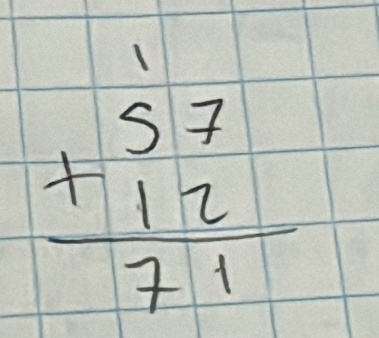 1
57
+ 12
71